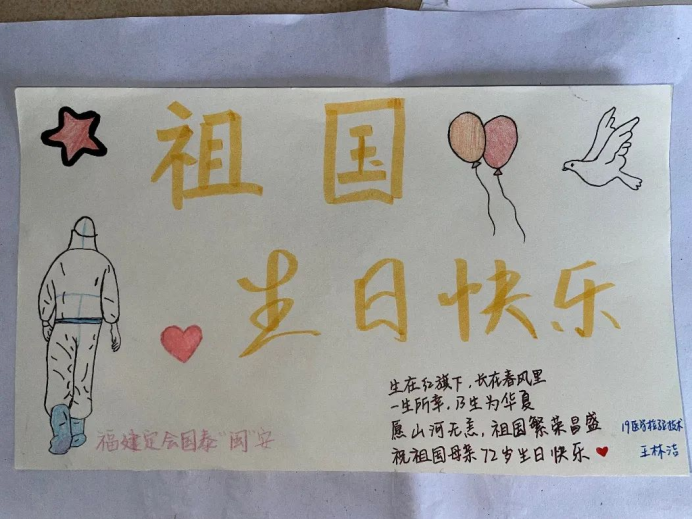 祖国
生日快乐
福建定会国泰"闽"安
生在红旗下，长在春风里
一生所幸，乃生为华夏
愿山河无恙，祖国繁荣昌盛
祝祖国母亲72岁生日快乐
19医学检验技术
王林洁